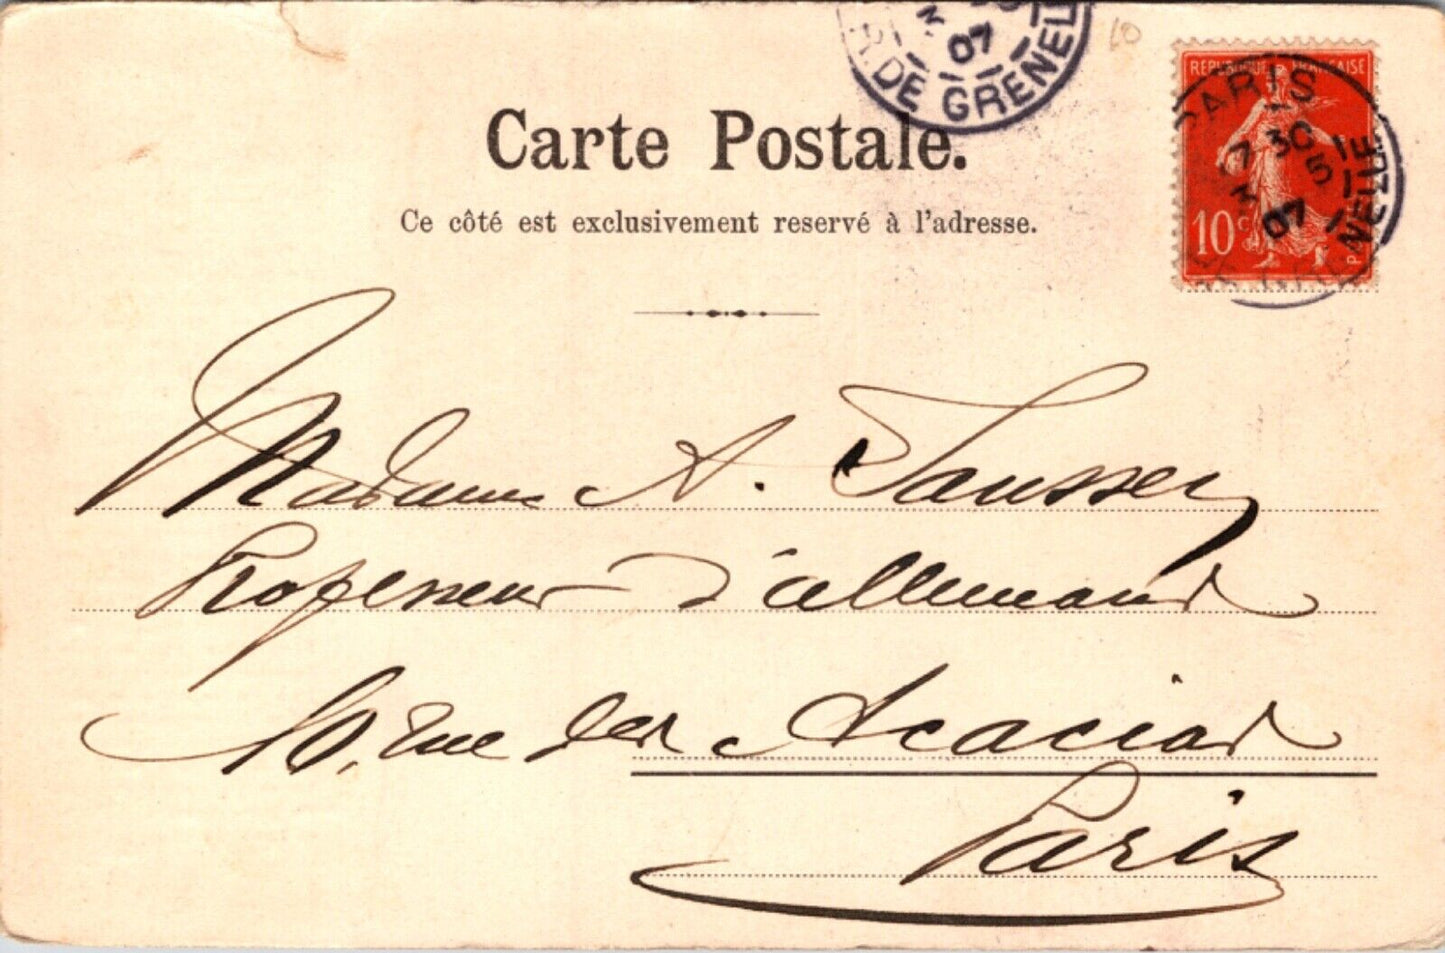 R. DE GRENEL
3
07
10
Carte Postale.
Ce côté est exclusivement reservé à l'adresse.
REPUBLIQUE FRANÇAISE
PARIS
7 30
3 5
07
GRENELLE
10c
Madame A. Saussey
Professeur d'allemand
10, rue des Acacias
Paris